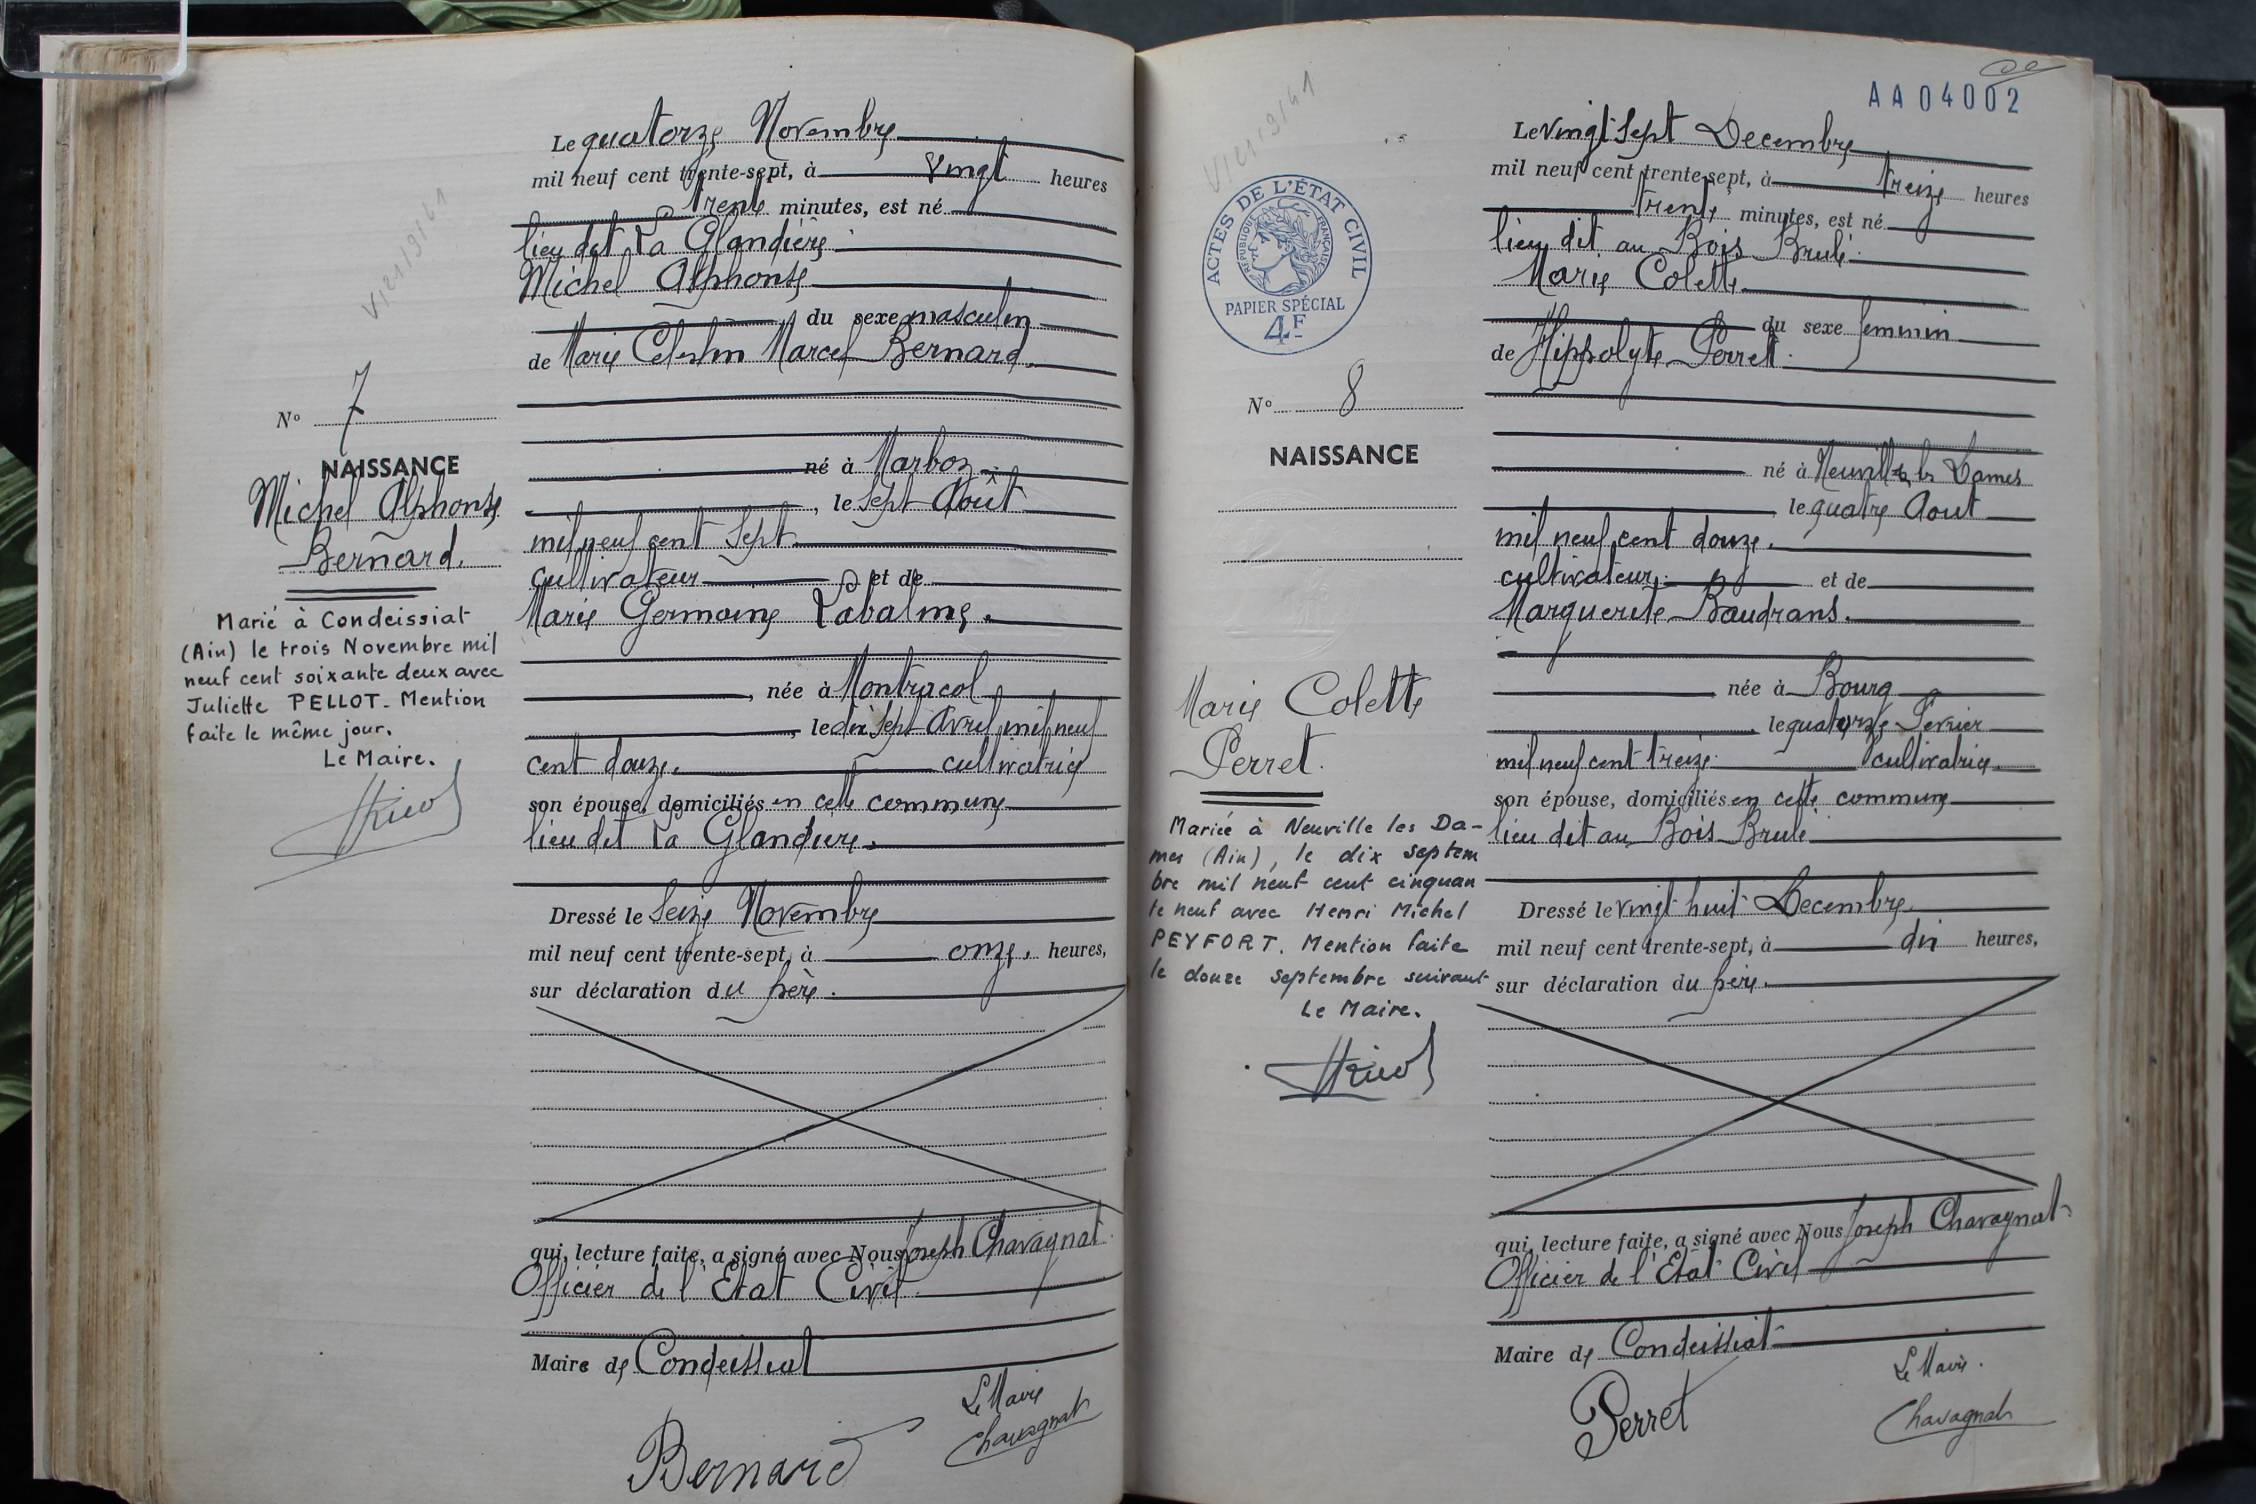 Le quatorze Novembre
mil neuf cent trente-sept, à vingt heures
trente minutes, est né
lieu dit La Glandière
Michel Alphonse
du sexe masculin
de Marie Célestin Marcel Bernard
N° 7
né à Marboz
NAISSANCE
Michel Alphonse
Bernard.
, le sept Août
mil neuf cent sept
cultivateur et de
Marie Germaine Labalme.
Marié à Condeissiat
(Ain) le trois Novembre mil
neuf cent soixante deux avec
Juliette PELLOT. Mention
faite le même jour.
Le Maire.
, née à Montracol
, le dix sept Avril mil neuf
cent douze. cultivatrice
son épouse, domiciliés en cette commune
lieu dit La Glandière.
Dressé le seize Novembre
mil neuf cent trente-sept, à onze. heures,
sur déclaration du père.
qui, lecture faite, a signé avec Nous Joseph Chavagnat
Officier de l'Etat Civil
Maire de Condeissiat
Le Maire
Chavagnat
Bernard
AA04002
Le vingt sept Decembre
mil neuf cent trente-sept, à treize heures
trente minutes, est né
lieu dit au Bois Brulé
Marie Colette
du sexe feminin
de Hippolyte Perret.
ACTES DE L'ÉTAT CIVIL
RÉPUBLIQUE FRANÇAISE
PAPIER SPÉCIAL
4F
N° 8
NAISSANCE
né à Neuville les Dames
, le quatre Aout
mil neuf cent douze.
cultivateur et de
Marguerite Baudrans.
Marie Colette
Perret.
née à Bourg
, le quatorze Fevrier
mil neuf cent treize cultivatrice
son épouse, domiciliés en cette commune
lieu dit au Bois Brulé
Mariée à Neuville les Da-
mes (Ain), le dix septem
bre mil neuf cent cinquan
te neuf avec Henri Michel
PEYFORT. Mention faite
le douze septembre suivant
Le Maire.
Dressé le vingt huit Decembre
mil neuf cent trente-sept, à dix heures,
sur déclaration du père.
qui, lecture faite, a signé avec Nous Joseph Chavagnat
Officier de l'Etat Civil
Maire de Condeissiat
Le Maire.
Chavagnat
Perret